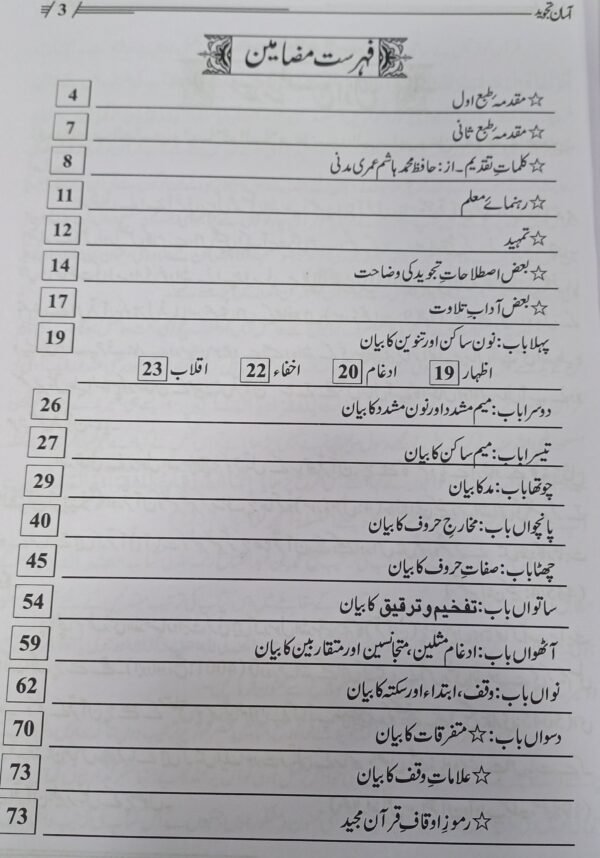 آسان تجوید 3
فہرست مضامین
☆ مقدمہ طبع اول 4
☆ مقدمہ طبع ثانی 7
☆ کلماتِ تقدیم ۔ از : حافظ محمد ہاشم عمری مدنی 8
☆ رہنمائے معلم 11
☆ تمہید 12
☆ بعض اصطلاحاتِ تجوید کی وضاحت 14
☆ بعض آدابِ تلاوت 17
پہلا باب : نون ساکن اور تنوین کا بیان 19
اظہار 19 ادغام 20 اخفاء 22 اقلاب 23
دوسرا باب : میم مشدد اور نون مشدد کا بیان 26
تیسرا باب : میم ساکن کا بیان 27
چوتھا باب : مد کا بیان 29
پانچواں باب : مخارجِ حروف کا بیان 40
چھٹا باب : صفاتِ حروف کا بیان 45
ساتواں باب : تفخیم و ترقیق کا بیان 54
آٹھواں باب : ادغام مثلین، متجانسین اور متقاربین کا بیان 59
نواں باب : وقف، ابتداء اور سکتہ کا بیان 62
دسواں باب : ☆ متفرقات کا بیان 70
☆ علاماتِ وقف کا بیان 73
☆ رموزِ اوقافِ قرآن مجید 73